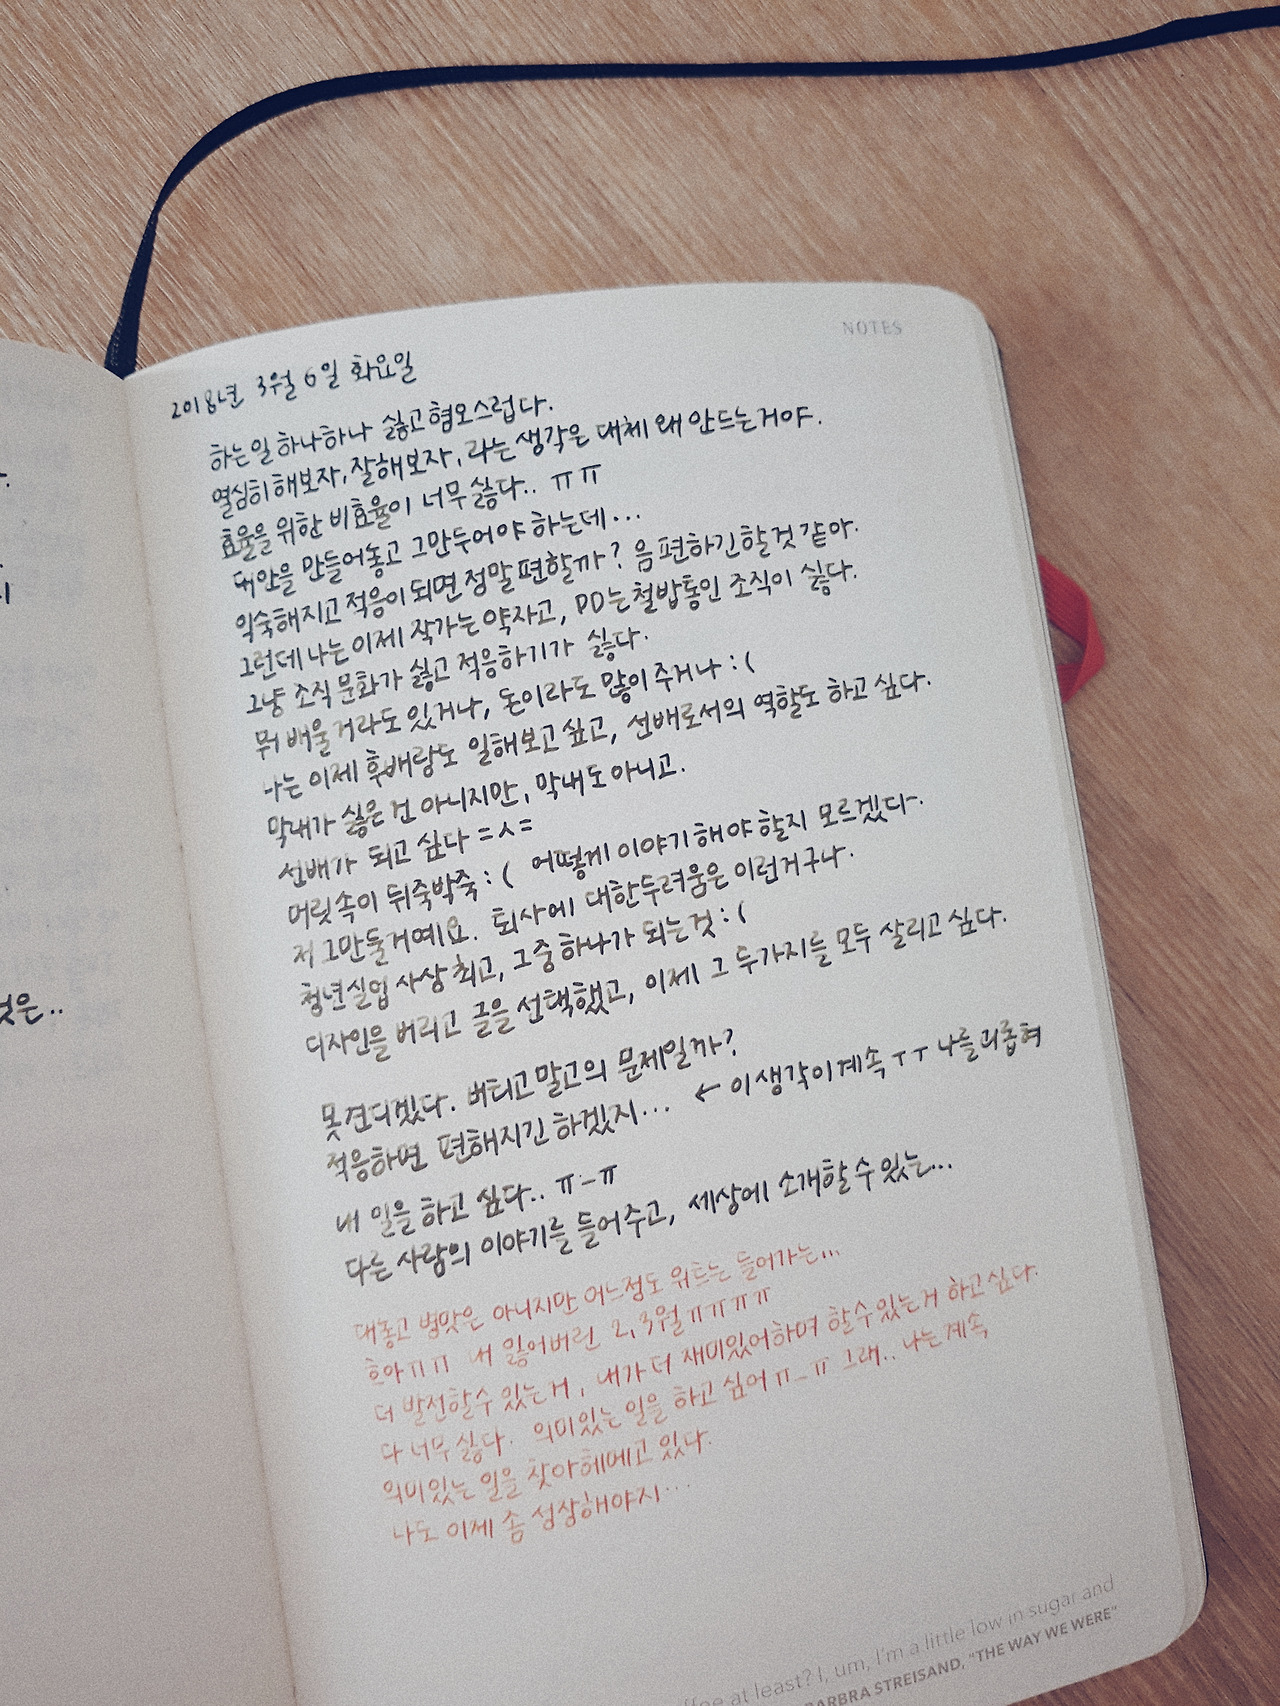 NOTES
2018년 3월 6일 화요일
하는일 하나하나 싫고 혐오스럽다.
열심히 해보자, 잘해보자, 라는 생각은 대체 왜 안드는거야.
효율을 위한 비효율이 너무 싫다.. ㅠㅠ
대안을 만들어놓고 그만두어야 하는데...
익숙해지고 적응이 되면 정말 편할까? 음 편하긴할것 같아.
그런데 나는 이제 작가는 약자고, PD는 철밥통인 조직이 싫다.
그냥 조직 문화가 싫고 적응하기가 싫다.
뭐 배울거라도 있거나, 돈이라도 많이 주거나 :(
나는 이제 후배랑도 일해보고 싶고, 선배로서의 역할도 하고 싶다.
막내가 싫은 건 아니지만, 막내도 아니고.
선배가 되고 싶다 =ㅅ=
머릿속이 뒤죽박죽 :( 어떻게 이야기 해야 할지 모르겠다.
저 그만둘거예요. 퇴사에 대한 두려움은 이런거구나.
청년실업 사상 최고, 그중 하나가 되는것 :(
디자인을 버리고 글을 선택했고, 이제 그 두가지를 모두 살리고 싶다.
못견디겠다. 버티고 말고의 문제일까?
적응하면 편해지긴 하겠지... ← 이 생각이 계속 ㅜㅜ 나를 괴롭혀
내 일을 하고 싶다.. ㅠ_ㅠ
다른 사람의 이야기를 들어주고, 세상에 소개할 수 있는...
대놓고 병맛은 아니지만 어느정도 위트는 들어가는...
흐아ㅠㅠ 내 잃어버린 2, 3월 ㅠㅠㅠㅠ
더 발전할수 있는거, 내가 더 재미있어하며 할수있는거 하고싶다.
다 너무 싫다. 의미있는 일을 하고 싶어 ㅠ_ㅠ 그래.. 나는 계속
의미있는 일을 찾아 헤메고 있다.
나도 이제 좀 성장해야지...
것은..
at least? I, um, I'm a little low in sugar and
BARBRA STREISAND, "THE WAY WE WERE"